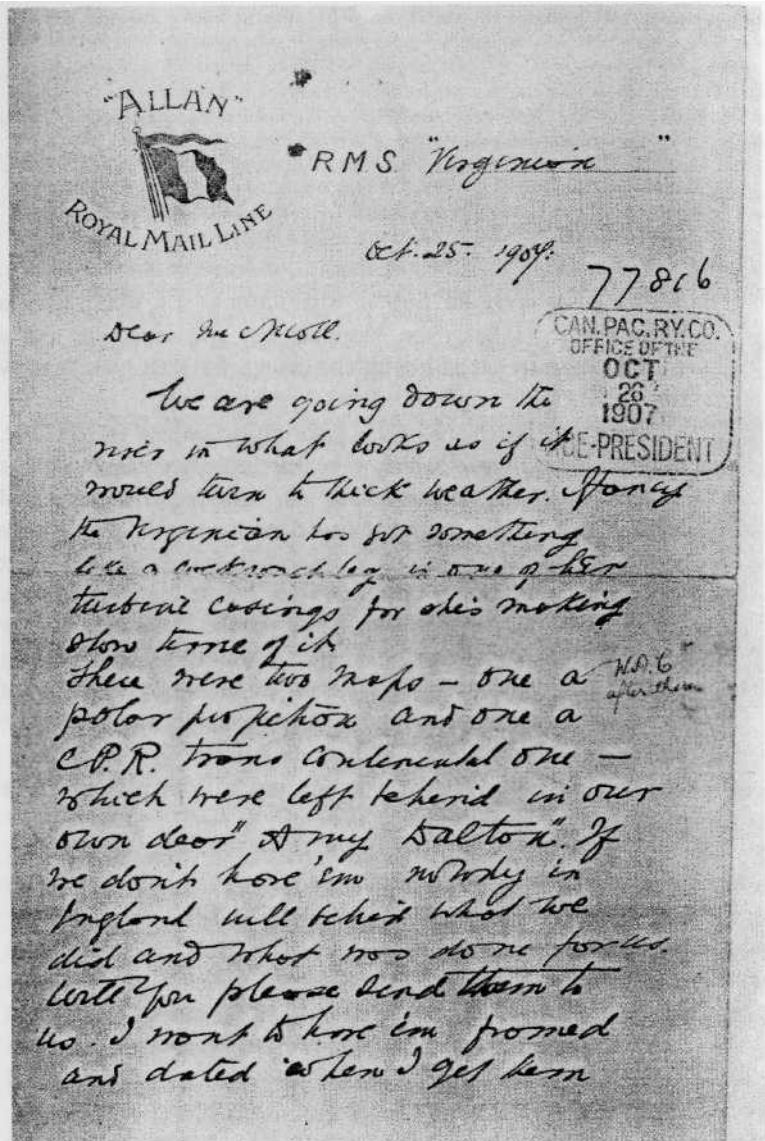 "ALLAN"
ROYAL MAIL LINE
R.M.S. "Virginian"
Oct. 25. 1907.
77816
CAN. PAC. RY. CO.
OFFICE OF THE
OCT
26
1907
VICE-PRESIDENT
Dear McNicoll.
We are going down the
river in what looks as if it
would turn to thick weather. I fancy
the Virginian has got something
like a cockroach leg in one of her
turbine casings for she's making
slow time of it.
There were two maps — one a
W.D.C
after them
polar projection and one a
C.P.R. trans continental one —
which were left behind in our
own dear "Amy Dalton". If
we don't have 'em nobody in
England will what we
did and what was done for us.
Will you please send them to
us. I want to have 'em framed
and dated when I get them